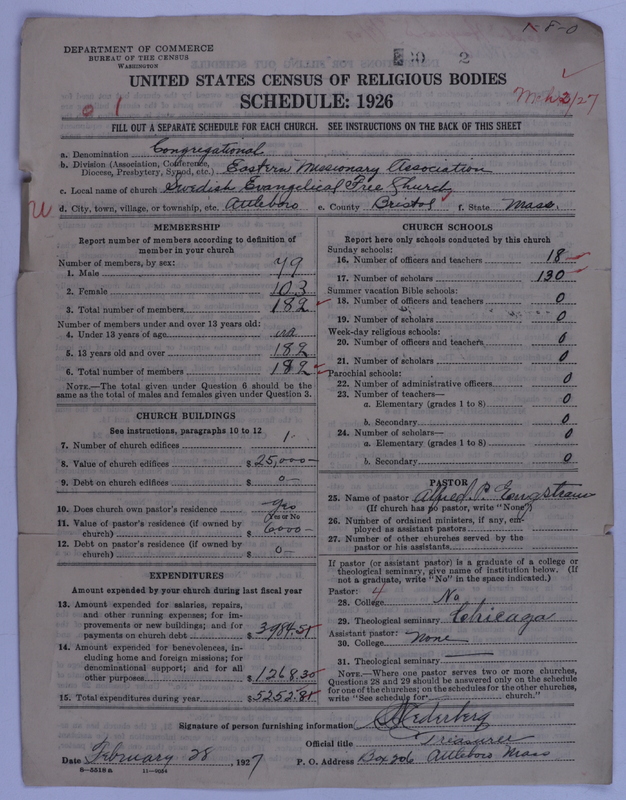 A-8-0
DEPARTMENT OF COMMERCE
BUREAU OF THE CENSUS
WASHINGTON
2
UNITED STATES CENSUS OF RELIGIOUS BODIES
SCHEDULE: 1926
3/27
0 1
FILL OUT A SEPARATE SCHEDULE FOR EACH CHURCH. SEE INSTRUCTIONS ON THE BACK OF THIS SHEET
a. Denomination Congregational
b. Division (Association, Conference, Diocese, Presbytery, Synod, etc.) Eastern Missionary Association
c. Local name of church Swedish Evangelical Free Church
d. City, town, village, or township, etc. Attleboro e. County Bristol f. State Mass.
MEMBERSHIP
Report number of members according to definition of
member in your church
Number of members, by sex:
1. Male 79
2. Female 103
3. Total number of members 182
Number of members under and over 13 years old:
4. Under 13 years of age no
5. 13 years old and over 182
6. Total number of members 182
NOTE.—The total given under Question 6 should be the
same as the total of males and females given under Question 3.
CHURCH BUILDINGS
See instructions, paragraphs 10 to 12
7. Number of church edifices 1
8. Value of church edifices $ 25,000—
9. Debt on church edifices $ 0—
10. Does church own pastor's residence Yes
Yes or No
11. Value of pastor's residence (if owned by
church) $ 6000—
12. Debt on pastor's residence (if owned by
church) $ 0—
EXPENDITURES
Amount expended by your church during last fiscal year
13. Amount expended for salaries, repairs,
and other running expenses; for im-
provements or new buildings; and for
payments on church debt $ 3984.51
14. Amount expended for benevolences, in-
cluding home and foreign missions; for
denominational support; and for all
other purposes $ 1268.30
15. Total expenditures during year $ 5252.81
CHURCH SCHOOLS
Report here only schools conducted by this church
Sunday schools:
16. Number of officers and teachers 18
17. Number of scholars 130
Summer vacation Bible schools:
18. Number of officers and teachers 0
19. Number of scholars 0
Week-day religious schools:
20. Number of officers and teachers 0
21. Number of scholars 0
Parochial schools:
22. Number of administrative officers 0
23. Number of teachers—
a. Elementary (grades 1 to 8) 0
b. Secondary 0
24. Number of scholars—
a. Elementary (grades 1 to 8) 0
b. Secondary 0
PASTOR
25. Name of pastor Alfred P. Engstrom
(If church has no pastor, write "None")
26. Number of ordained ministers, if any, em-
ployed as assistant pastors
27. Number of other churches served by the
pastor or his assistants
If pastor (or assistant pastor) is a graduate of a college or
theological seminary, give name of institution below. (If
not a graduate, write "No" in the space indicated.)
Pastor: 4
28. College No
29. Theological seminary Chicago
Assistant pastor:
30. College None
31. Theological seminary —
NOTE.—Where one pastor serves two or more churches,
Questions 28 and 29 should be answered only on the schedule
for one of the churches; on the schedules for the other churches,
write "See schedule for church."
Signature of person furnishing information Cederberg
Official title Treasurer
Date February 28, 1927 P. O. Address Box 206 Attleboro Mass
8-5518 a 11-9054